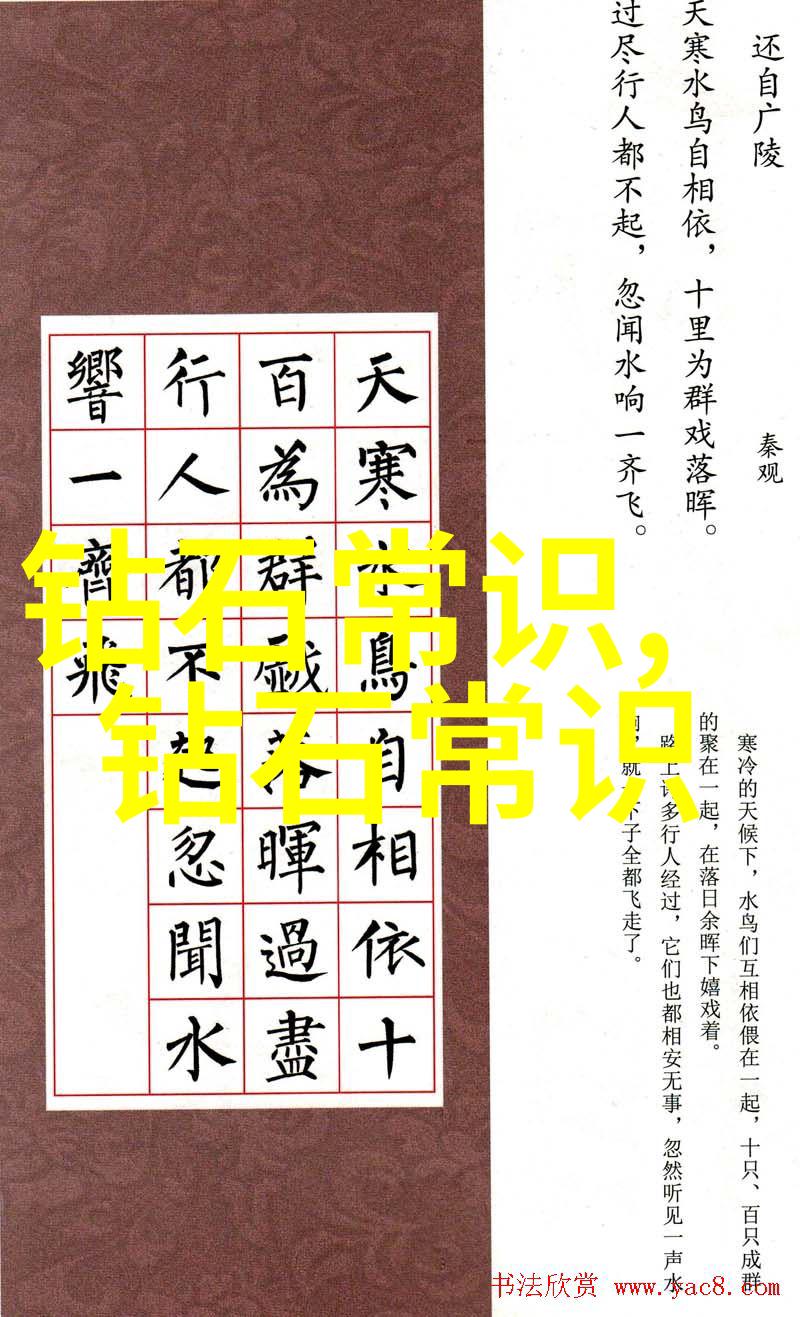 还自广陵
秦观
天寒水鸟自相依，十里为群戏落晖。
过尽行人都不起，忽闻水响一齐飞。
天寒水鳥自相依十
百為群戲落暉過盡
行人都不起忽聞水
響一齊飛
钻石常识,
钻石常识
寒冷的天候下，水鸟们互相依偎在一起，十只、百只成群
的聚在一起，在落日余晖下嬉戏着。
路上许多行人经过，它们也都相安无事，忽然听见一声水
响，就一下子全都飞走了。
书法欣赏 www.yac8.com